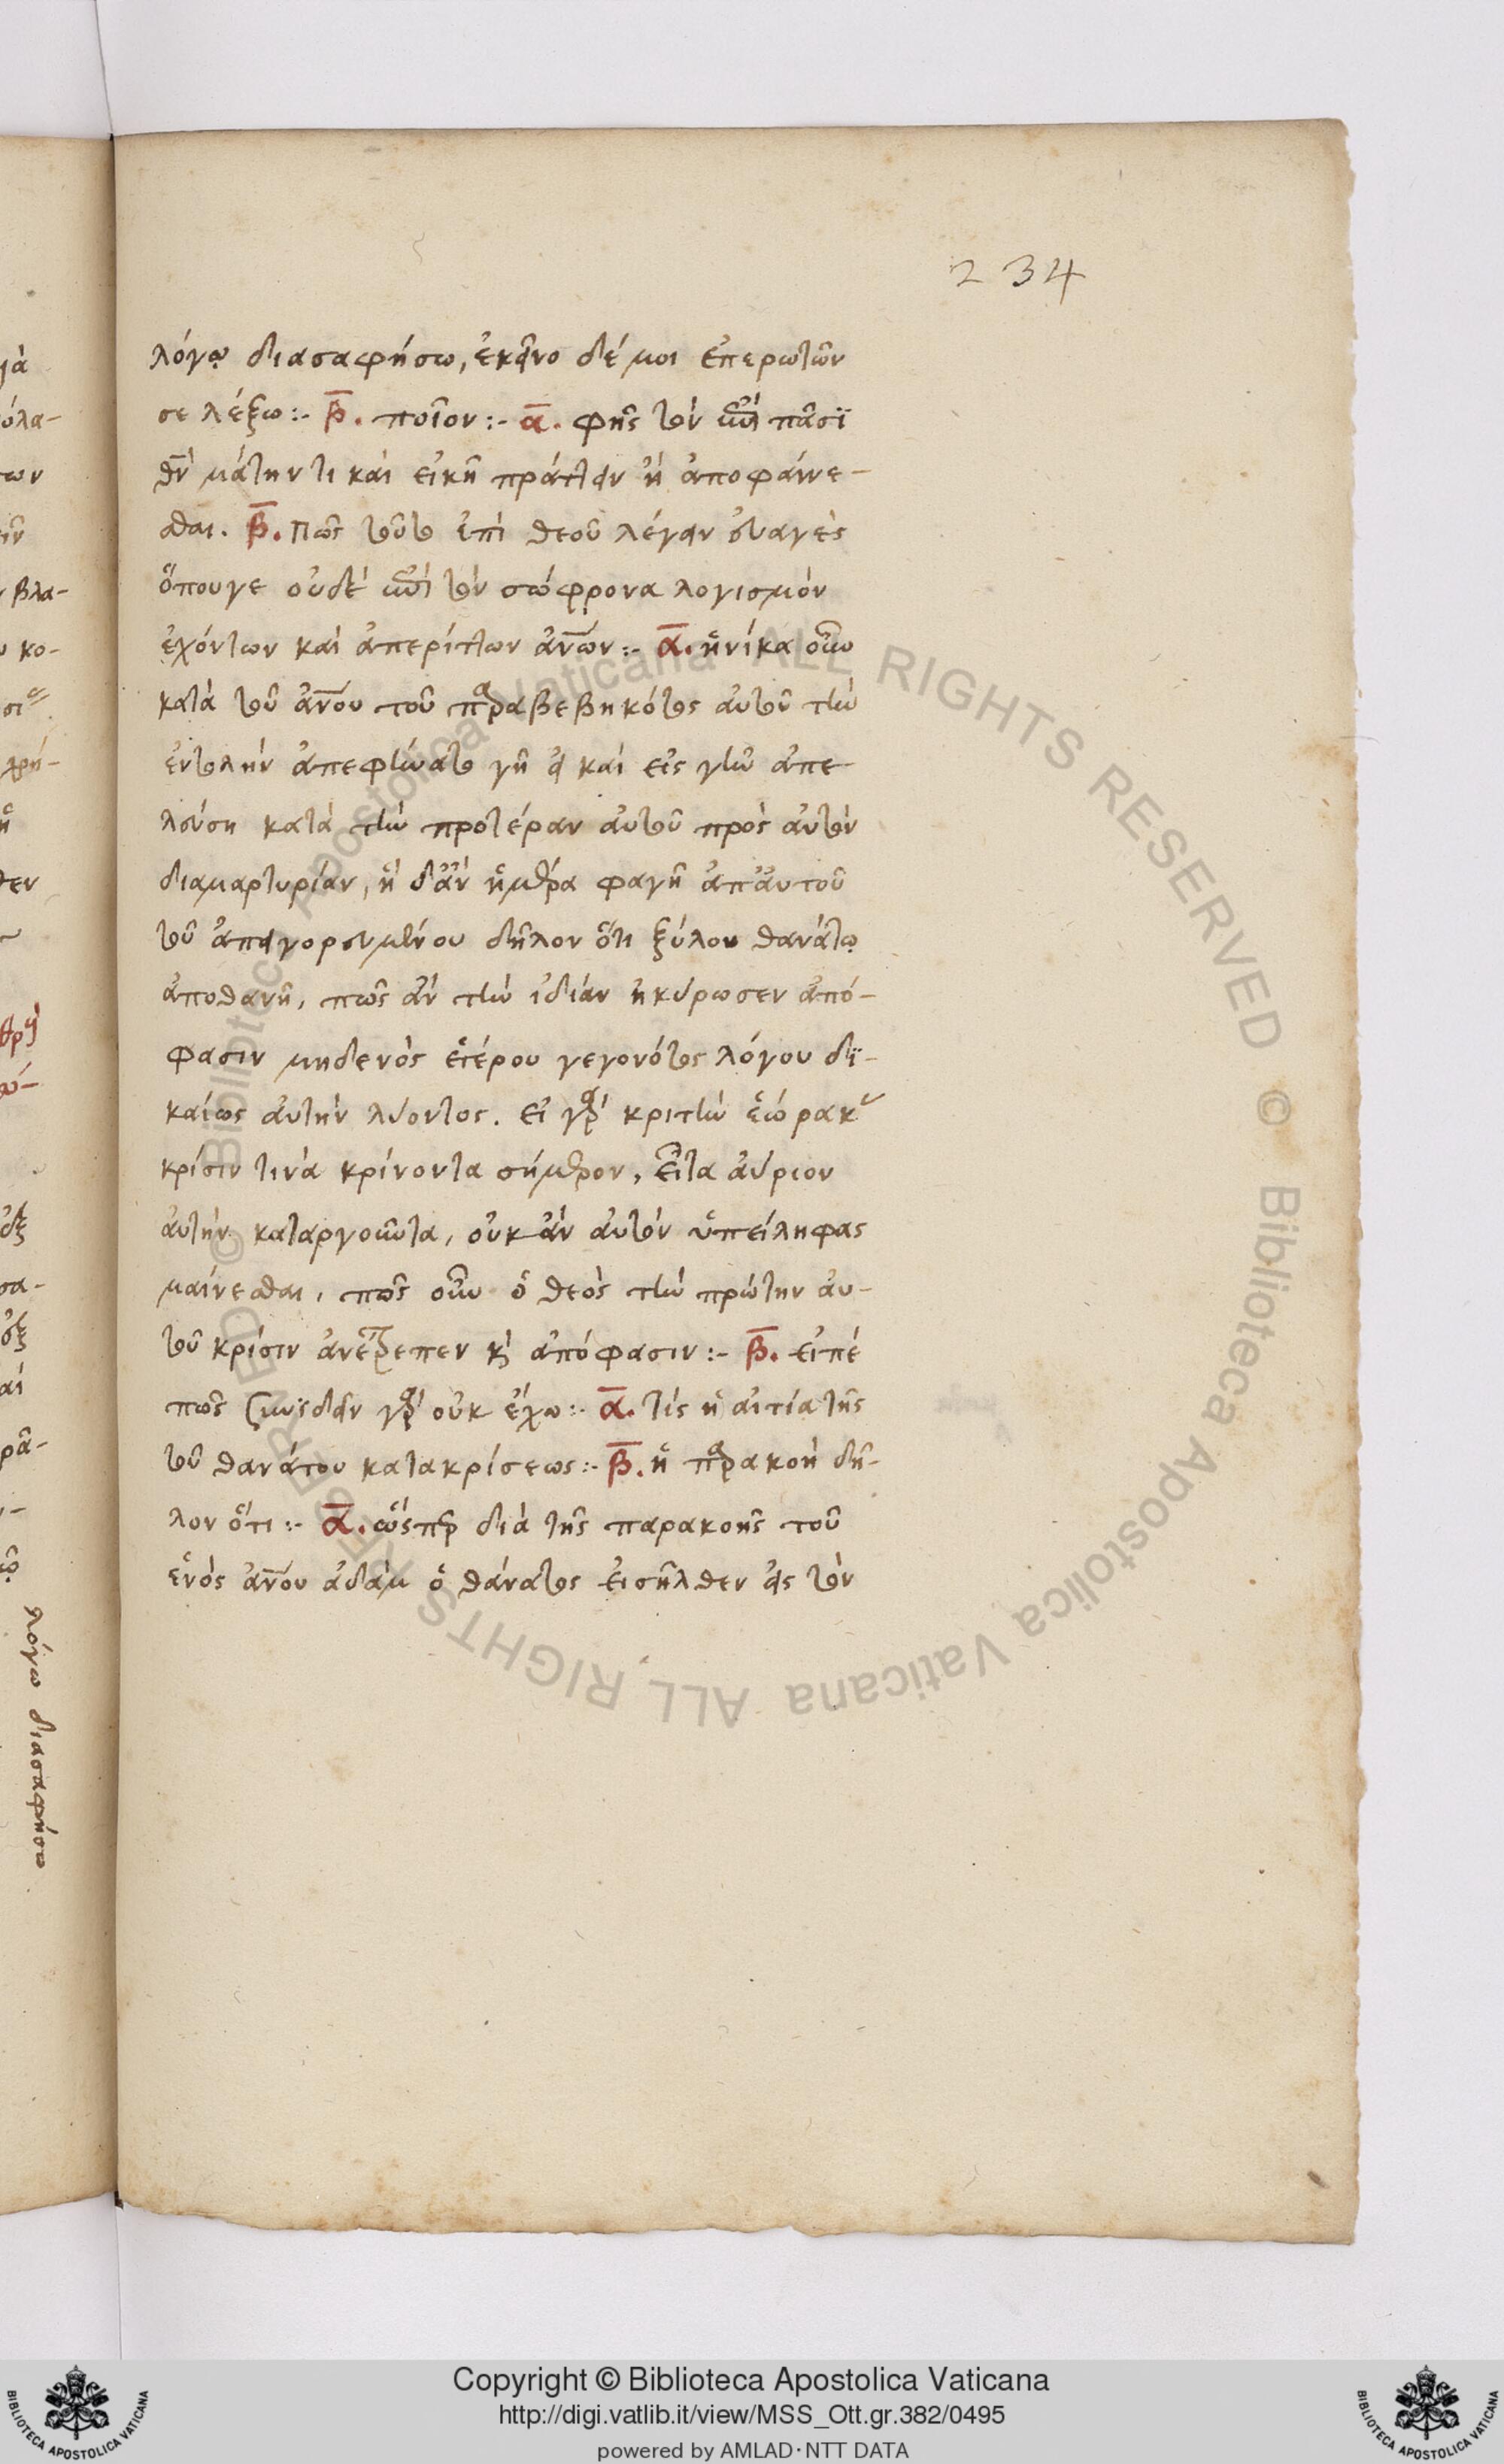 234
λόγω διασαφήσω, ἐκεῖνο δέ μοι ἐπερωτῶν
σε λέξω:- β̅. ποῖον:- α̅. φῂς τὸν ἐπὶ πᾶσϊ
θ̅ν̅ μάτην τι καὶ εἰκῆ πράττειν ἢ ἀποφαίνε-
σθαι. β̅. Πῶς τοῦτο ἐπὶ θεοῦ λέγειν εὐαγὲς
ὅπουγε οὐδὲ ἐπὶ τὸν σώφρονα λογισμὸν
ἐχόντων καὶ ἀπερίττων ἀν̅ω̅ν:- α̅. ἡνίκα οὖν
κατὰ τοῦ ἀν̅ου τοῦ παραβεβηκότος αὐτοῦ τὴν
ἐντολὴν ἀπεφήνατο γῆ εἶ καὶ εἰς γῆν ἀπε
λεύση κατὰ τὴν προτέραν αὐτοῦ πρὸς αὐτὸν
διαμαρτυρίαν, ἧ δἂν ἡμέρα φαγῆ ἀπαὐτοῦ
τοῦ ἀπηγορευμένου δῆλον ὅτι ξύλου θανάτω
ἀποθανῆ, πῶς ἂν τὴν ἰδίαν ἠκύρωσεν ἀπό-
φασιν μηδενὸς ἑτέρου γεγονότος λόγου δϊ-
καίως αὐτὴν λύοντος. εἰ γὰρ κριτὴν ἑώρακας
κρίσιν τινὰ κρίνοντα σήμερον, εἶτα αὔριον
αὐτὴν καταργοῦντα, οὐκ ἂν αὐτὸν ὑπείληφας
μαίνεσθαι, πῶς οὖν ὁ θεὸς τὴν πρώτην αὐ-
τοῦ κρίσιν ἀνέτρεπεν κὶ ἀπόφασιν:- β̅. εἰπὲ
πῶς συνϊδεῖν γὰρ οὐκ ἔχω:- α̅. τίς ἡ αἰτία τῆς
τοῦ θανάτου κατακρίσεως:- β̅. ἡ παρακοὴ δῆ-
λον ὅτι:- α̅. ὥσπερ διὰ τῆς παρακοῆς τοῦ
ἑνὸς ἀν̅ου ἀδὰμ ὁ θάνατος εἰσῆλθεν εἰς τὸν
λόγω διασαφήσω
Copyright © Biblioteca Apostolica Vaticana
http://digi.vatlib.it/view/MSS_Ott.gr.382/0495
powered by AMLAD·NTT DATA